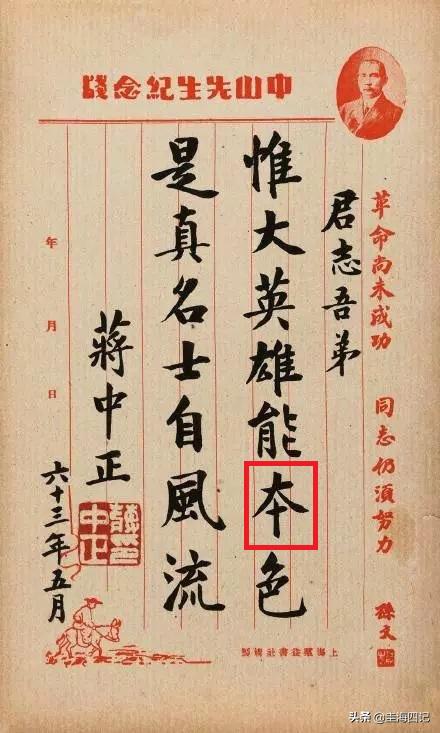 中山先生紀念牋
革命尚未成功 同志仍須努力 孫文
君志吾弟
惟大英雄能本色
是真名士自風流
蔣中正
蔣中正印
六十三年五月
年月日
上海
頭条 @圭海四记